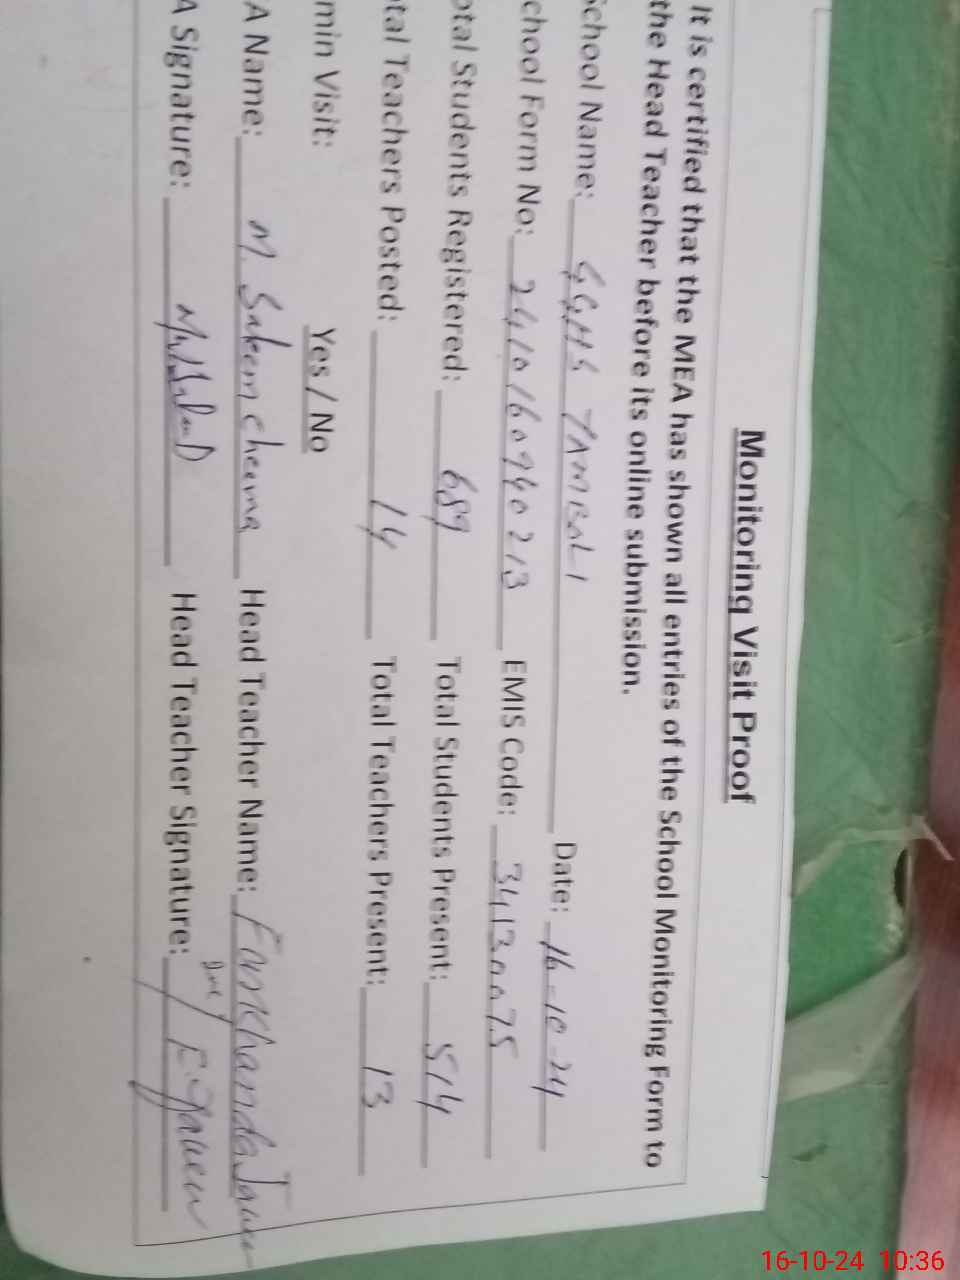 Monitoring Visit Proof
It is certified that the MEA has shown all entries of the School Monitoring Form to
the Head Teacher before its online submission.
School Name: GGHS TAMBOLI Date: 16-10-24
chool Form No: 2410160940213 EMIS Code: 34130075
otal Students Registered: 689 Total Students Present: 514
otal Teachers Posted: 14 Total Teachers Present: 13
min Visit: Yes / No
A Name: M. Saleem cheema Head Teacher Name: Farkhanda
A Signature: Head Teacher Signature:
16-10-24 10:36